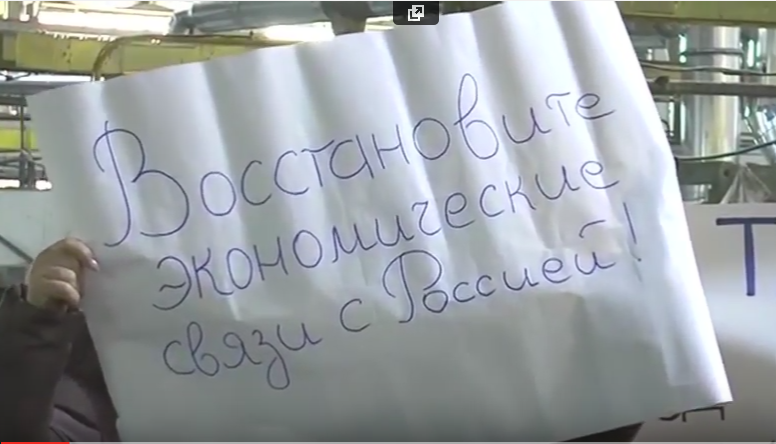 Восстановите
экономические
связи с Россией!
Т